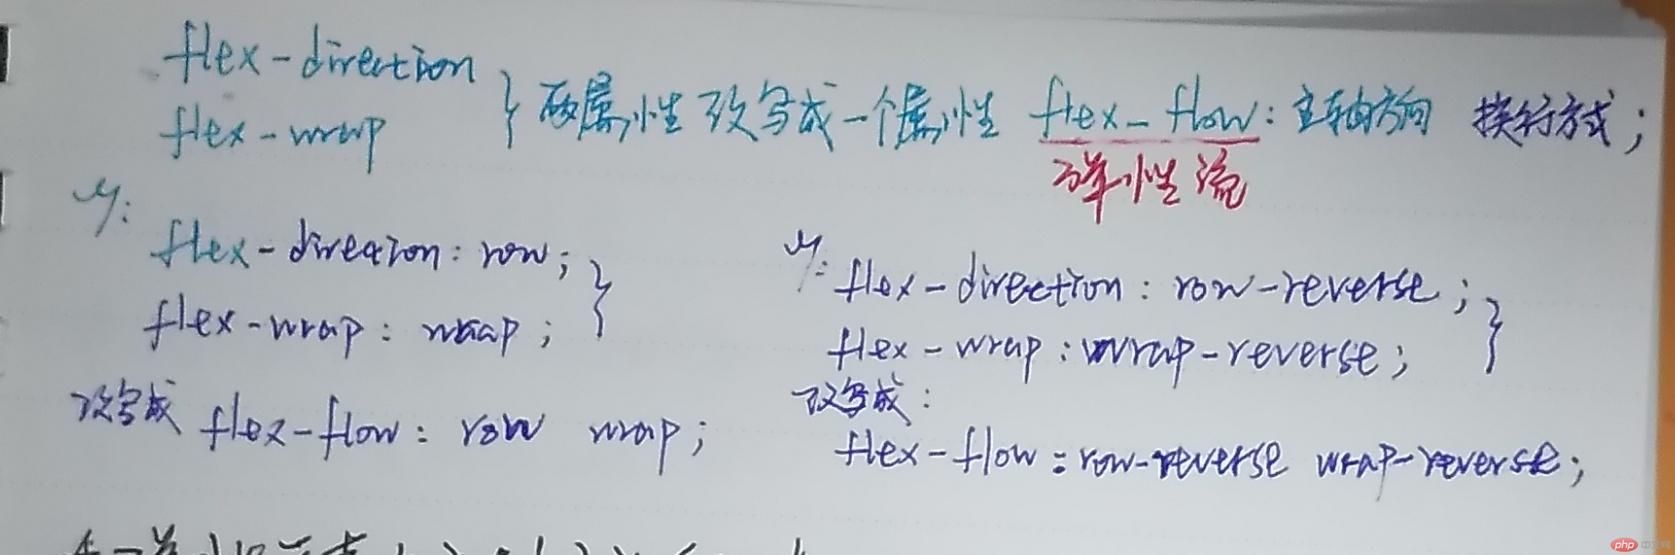 flex-direction
flex-wrap
} 两属性改写成一个属性 flex-flow: 主轴方向 换行方式;
弹性流
例:
flex-direction: row;
flex-wrap: wrap;
改写成 flex-flow: row wrap;
例:
flex-direction: row-reverse;
flex-wrap: wrap-reverse;
改写成:
flex-flow: row-reverse wrap-reverse;
php